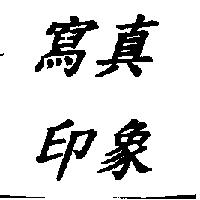 寫真
印象